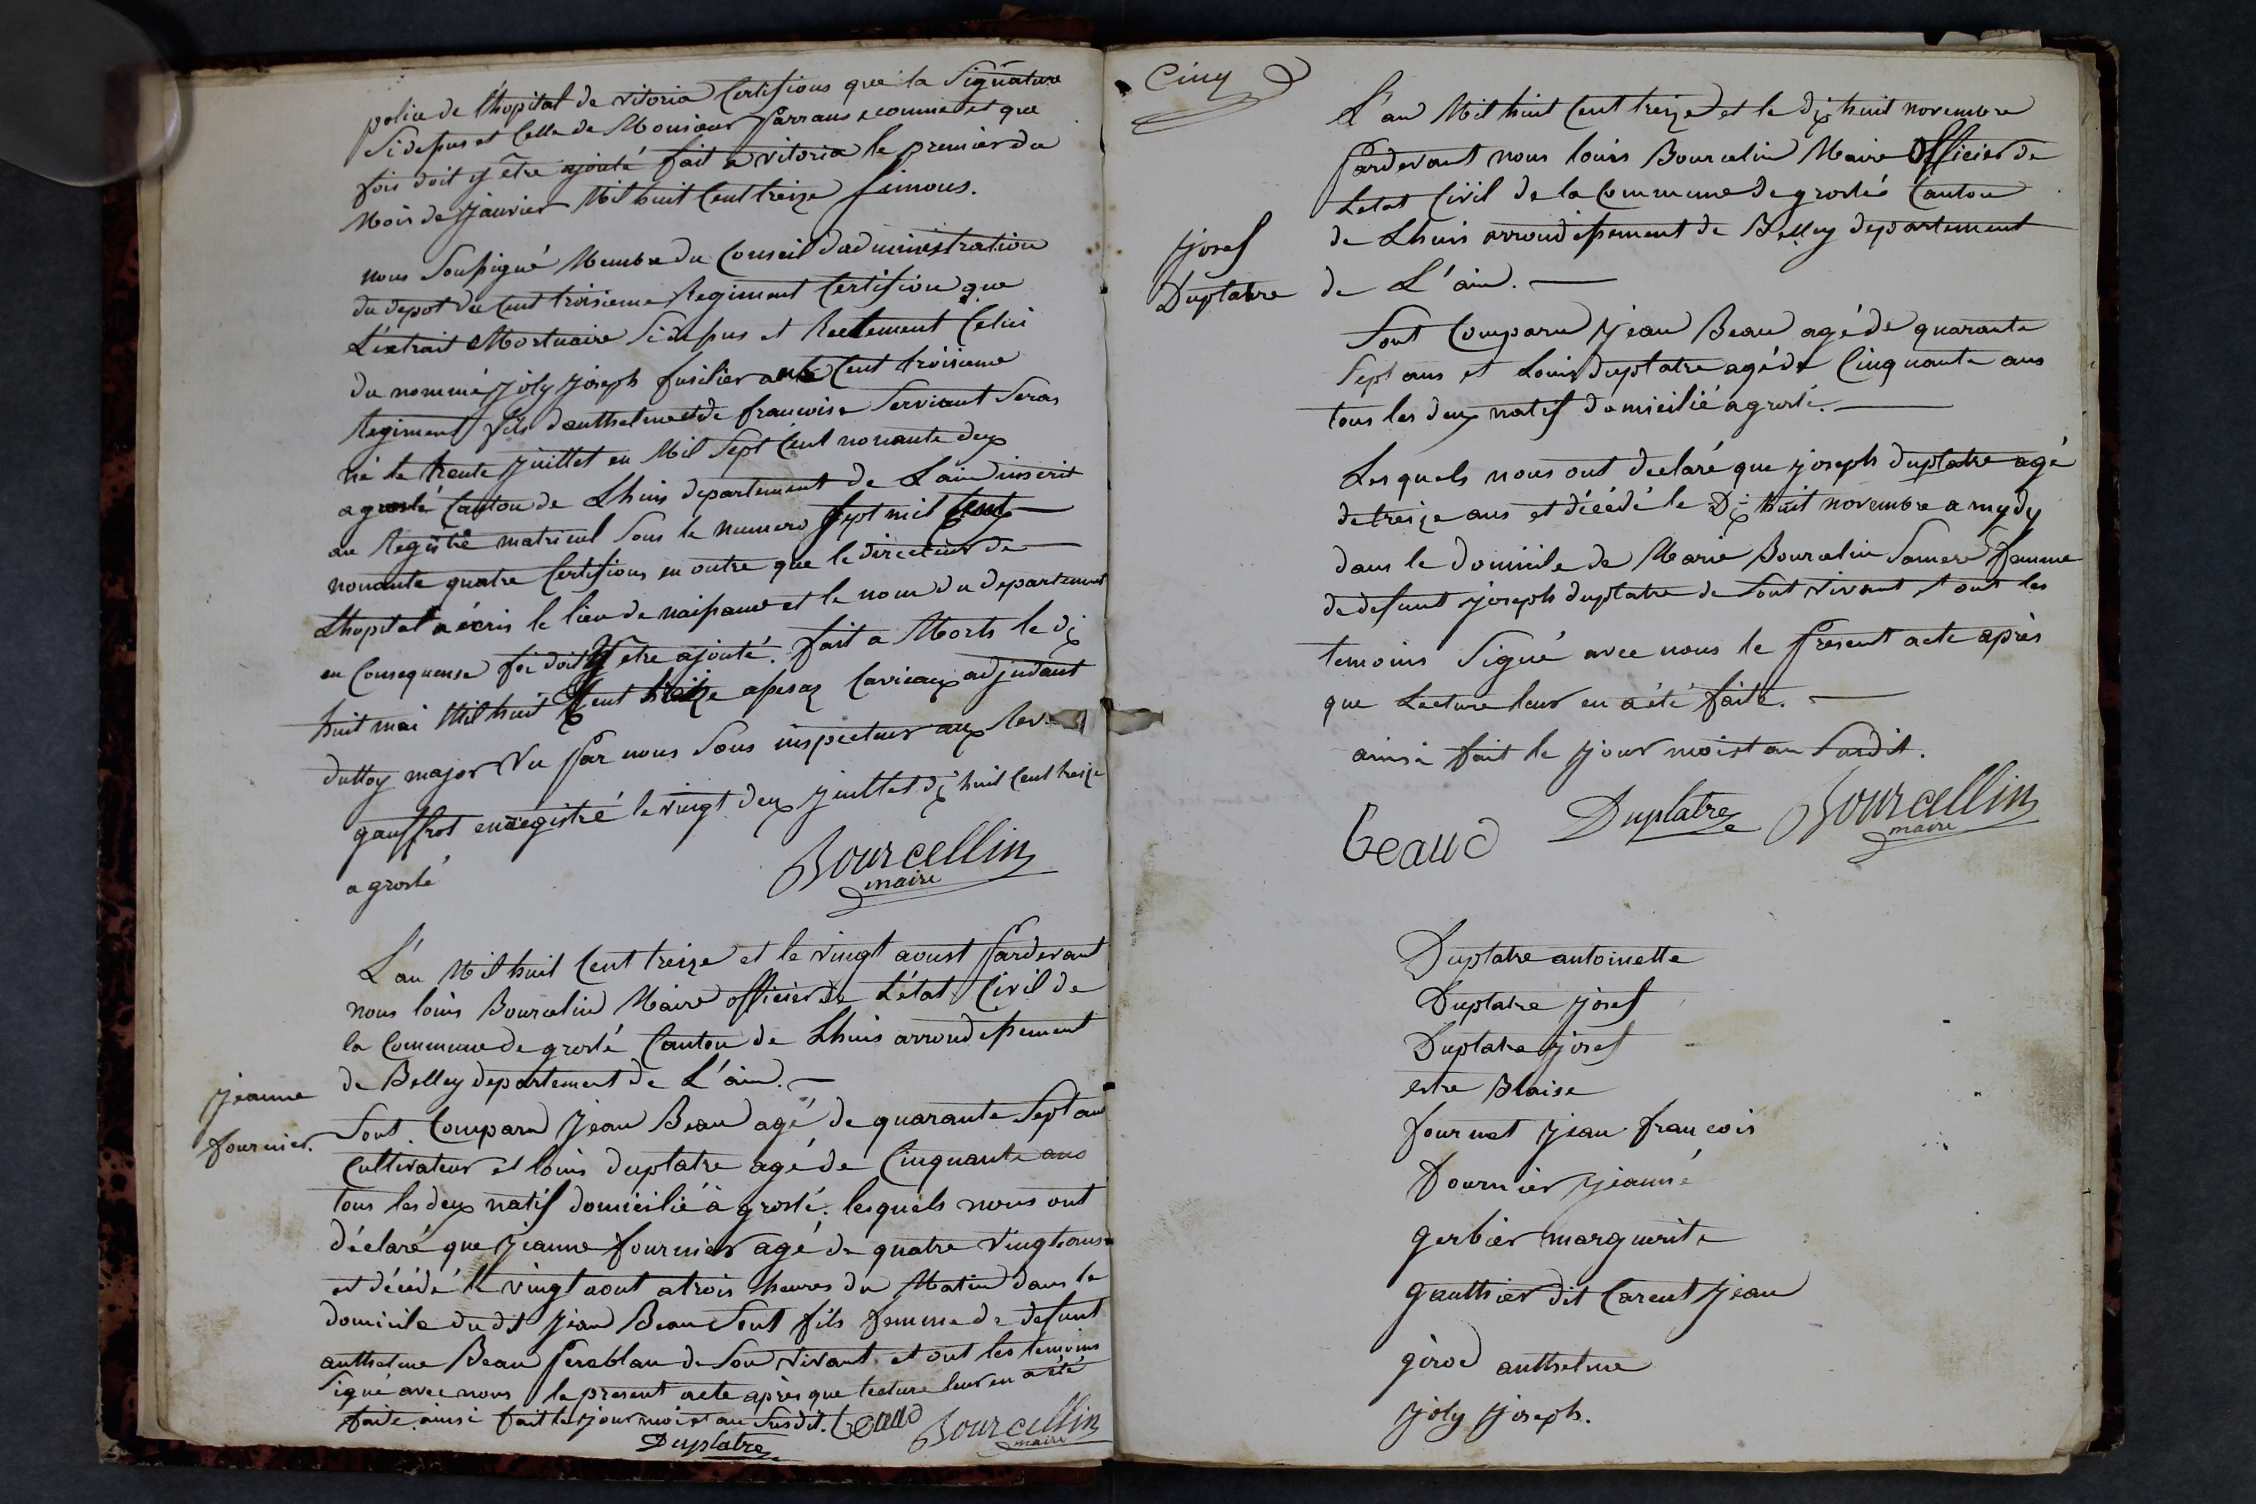 police de lhopital de vitoria Certifions que la Signature
Sidessus est Celle de Monsieur farrans ecomme et que
fois doit y être ajouté fait a vitoria le premier du
Mois de Janvier Mil huit Cent treize fimous.
nous Soussigné Membre du Conseil dadministration
du depot du Cent troisieme Regiment Certifion que
L'extrait Mortuaire Sidessus et Reellement Celui
du nommé joly joseph fusilier au Cent troisieme
Regiment fils danthelme et de francoise Serviant Seras
né le trente juillet en Mil Sept Cent nonante deux
a groslé Canton de Lhuis departement de Lain inscrit
au Registre matricul Sous le numero Sept mil Cent
nonante quatre Certifions en outre que le directeur de
Lhopital a écris le lieu de naissance et le nom du departement
en Consequense foi doit y etre ajouté. fait a Morts le dix
huit mai Mil huit Cent treize Cavicaux adjudant
duttoy major Vu Par nous Sous inspecteur aux Rev
gauffrot enregistré le vingt deux juillet dix huit Cent treize
a groslé
Bourcellin
maire
L'an Mil huit Cent treize et le vingt aoust Pardevant
nous louis Bourcelin Maire officier de L'état Civil de
la Commune de groslé Canton de Lhuis arrondissement
de Belley departement de L'ain.
jeanne
fournier.
Sont Comparu jean Beau agé de quarante Sept ans
Cultivateur et louis duplatre agé de Cinquante ans
tous les deux natif domicilié à groslé. lesquels nous ont
déclaré que jeanne fournier agé de quatre vingt ans
est décédé le vingt aout a trois heures du Matin dans le
domicile dudit jean Beau Sont fils femme de defunt
anthelme Beau de Son vivant et ont les temoins
Signé avec nous le present acte après que lecture leur en a été
faite. ainsi fait le jour mois et an Susdit. beaud
Bourcellin
maire
Duplatre
Cinq
L'an Mil huit Cent treize et le dix huit novembre
Pardevant nous louis Bourcelin Maire Officier de
Létat Civil de la Commune de groslée Canton
de Lhuis arrondissement de Belley departement
de L'ain.
josef
Duplatre
Sont Comparu jean Beau agé de quarante
Sept ans et Louis duplatre agé de Cinquante ans
tous les deux natif domicilié a groslé.
Lesquels nous ont declaré que joseph duplatre agé
de treize ans et décédé le Dix huit novembre a mydy
dans le domicile de Marie Bourcelin Samere femme
de defunt joseph duplatre de Sont vivant et ont les
temoins Signé avec nous le Présent acte après
que Lecture leur en a été faite.
ainsi fait le jour mois et an Susdit.
beaud
Duplatre
Bourcellin
maire
Duplatre antoinette
Duplatre josef
Duplatre josef
estre Blaise
fournet jean francois
Fournier jeanne
gerbier marguerite
gauthier dit Carent jean
girod anthelme
joly joseph.